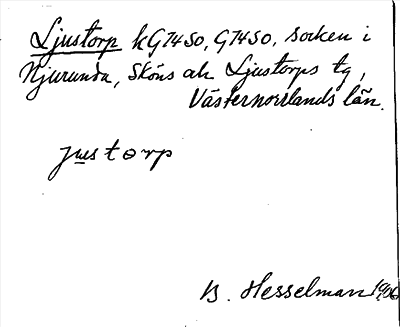 Ljustorp kG74SO, G74SO, socken i
Njurunda, Sköns och Ljustorps tg,
Västernorrlands län.
justorp
B. Hesselman 1906